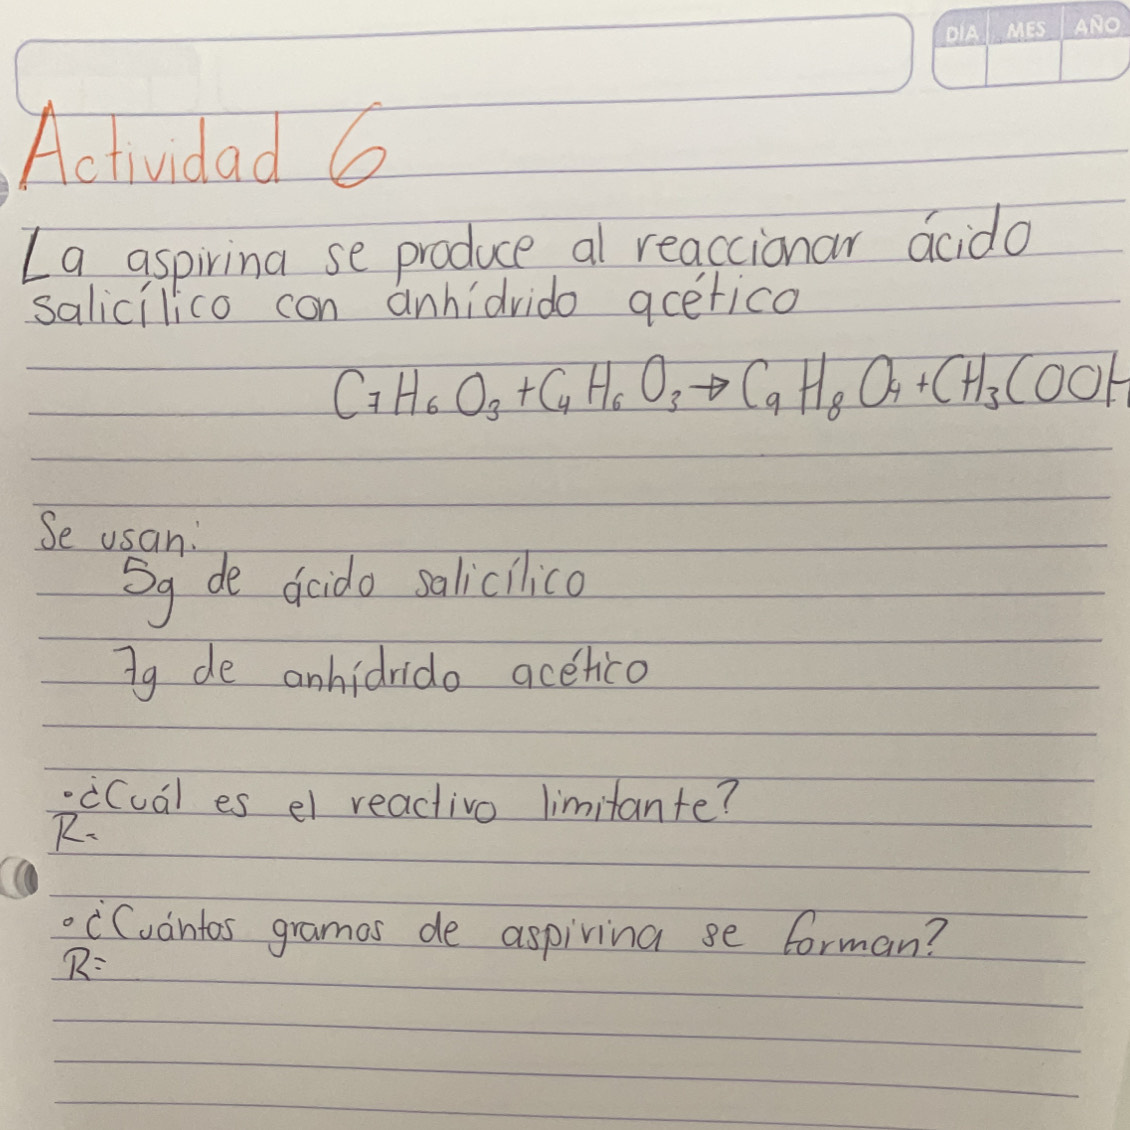 DÍA MES AÑO
Actividad 6
La aspirina se produce al reaccionar ácido
salicílico con anhídrido acético
C₇H₆O₃+C₄H₆O₃→C₉H₈O₄+CH₃COOH
Se usan:
5g de ácido salicílico
7g de anhídrido acético
•¿Cuál es el reactivo limitante?
R-
•¿Cuántos gramos de aspirina se forman?
R=